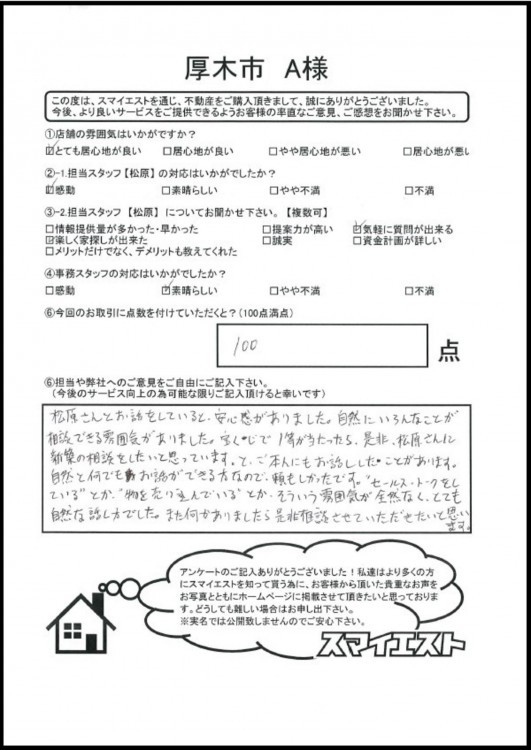 厚木市 A様
この度は、スマイエストを通じ、不動産をご購入頂きまして、誠にありがとうございました。
今後、より良いサービスをご提供できるようお客様の率直なご意見、ご感想をお聞かせ下さい。
①店舗の雰囲気はいかがですか?
☑とても居心地が良い □居心地が良い □やや居心地が悪い □居心地が悪い
②-1.担当スタッフ【松原】の対応はいかがでしたか?
☑感動 □素晴らしい □やや不満 □不満
③-2.担当スタッフ【松原】についてお聞かせ下さい。【複数可】
□情報提供量が多かった・早かった □提案力が高い ☑気軽に質問が出来る
☑楽しく家探しが出来た □誠実 □資金計画が詳しい
□メリットだけでなく、デメリットも教えてくれた
④事務スタッフの対応はいかがでしたか?
□感動 ☑素晴らしい □やや不満 □不満
⑥今回のお取引に点数を付けていただくと?(100点満点)
100 点
⑥担当や弊社へのご意見をご自由にご記入下さい。
(今後のサービス向上の為可能な限りご記入頂けると幸いです)
松原さんとお話をしていると、安心感がありました。自然にいろんなことが
相談できる雰囲気がありました。宝くじで1等が当たったら、是非、松原さんに
新築の相談をしたいと思っています。と、ご本人にもお話しした ことがあります。
自然と何でもお話ができる方なので、頼もしかったです。"セールス・トークをし
ている"とか、"物を売り込んでいる"とか、そういう雰囲気が全然なく、とても
自然な話し方でした。また何かありましたら是非相談させていただせたいと思い
ます。
アンケートのご記入ありがとうございました!私達はより多くの方
にスマイエストを知って貰う為に、お客様から頂いた貴重なお声を
お写真とともにホームページに掲載させて頂きたいと思っておりま
す。どうしても難しい場合はお申し出下さい。
※実名では公開致しませんのでご安心下さい。
スマイエスト